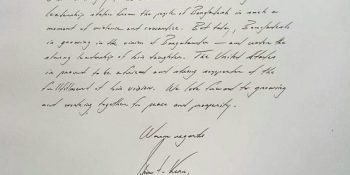 leadership stolen from the people of Bangladesh in such a
moment of violence and cowardice. But today, Bangladesh
is growing in the vision of Bangabandhu — and under the
strong leadership of his daughter. The United States
is proud to be a friend and strong supporter of the
fulfillment of his vision. We look forward to growing
and working together for peace and prosperity.
Warm regards